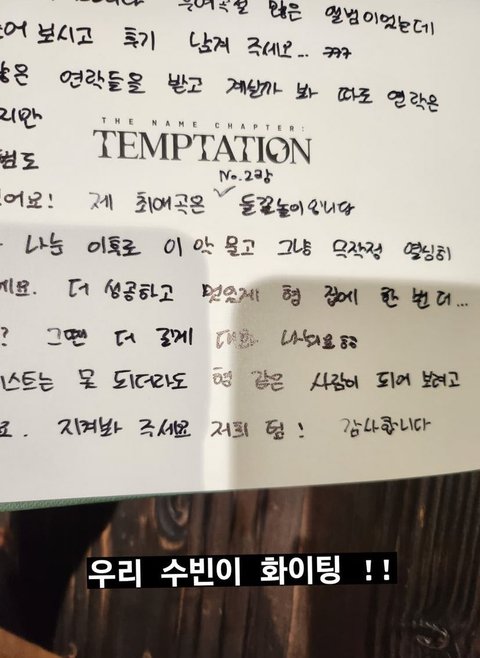 많은 앨범이었는데
보시고 후기 남겨 주세요... ㅋㅋㅋ
연락들을 받고 계실까 봐 따로 연락은
지만
THE NAME CHAPTER:
TEMPTATION
No.2랑
어요! 제 최애곡은 ✓ 들꽃놀이입니다
나눈 이후로 이 악 물고 그냥 무작정 열심히
에요. 더 성공하고 멋있게 형 집에 한 번 더...
? 그땐 더 길게 대화 나눠요ㅎㅎ
스트는 못 되더라도 형 같은 사람이 되어 보려고
요. 지켜봐 주세요 저희 팀! 감사합니다
우리 수빈이 화이팅 !!